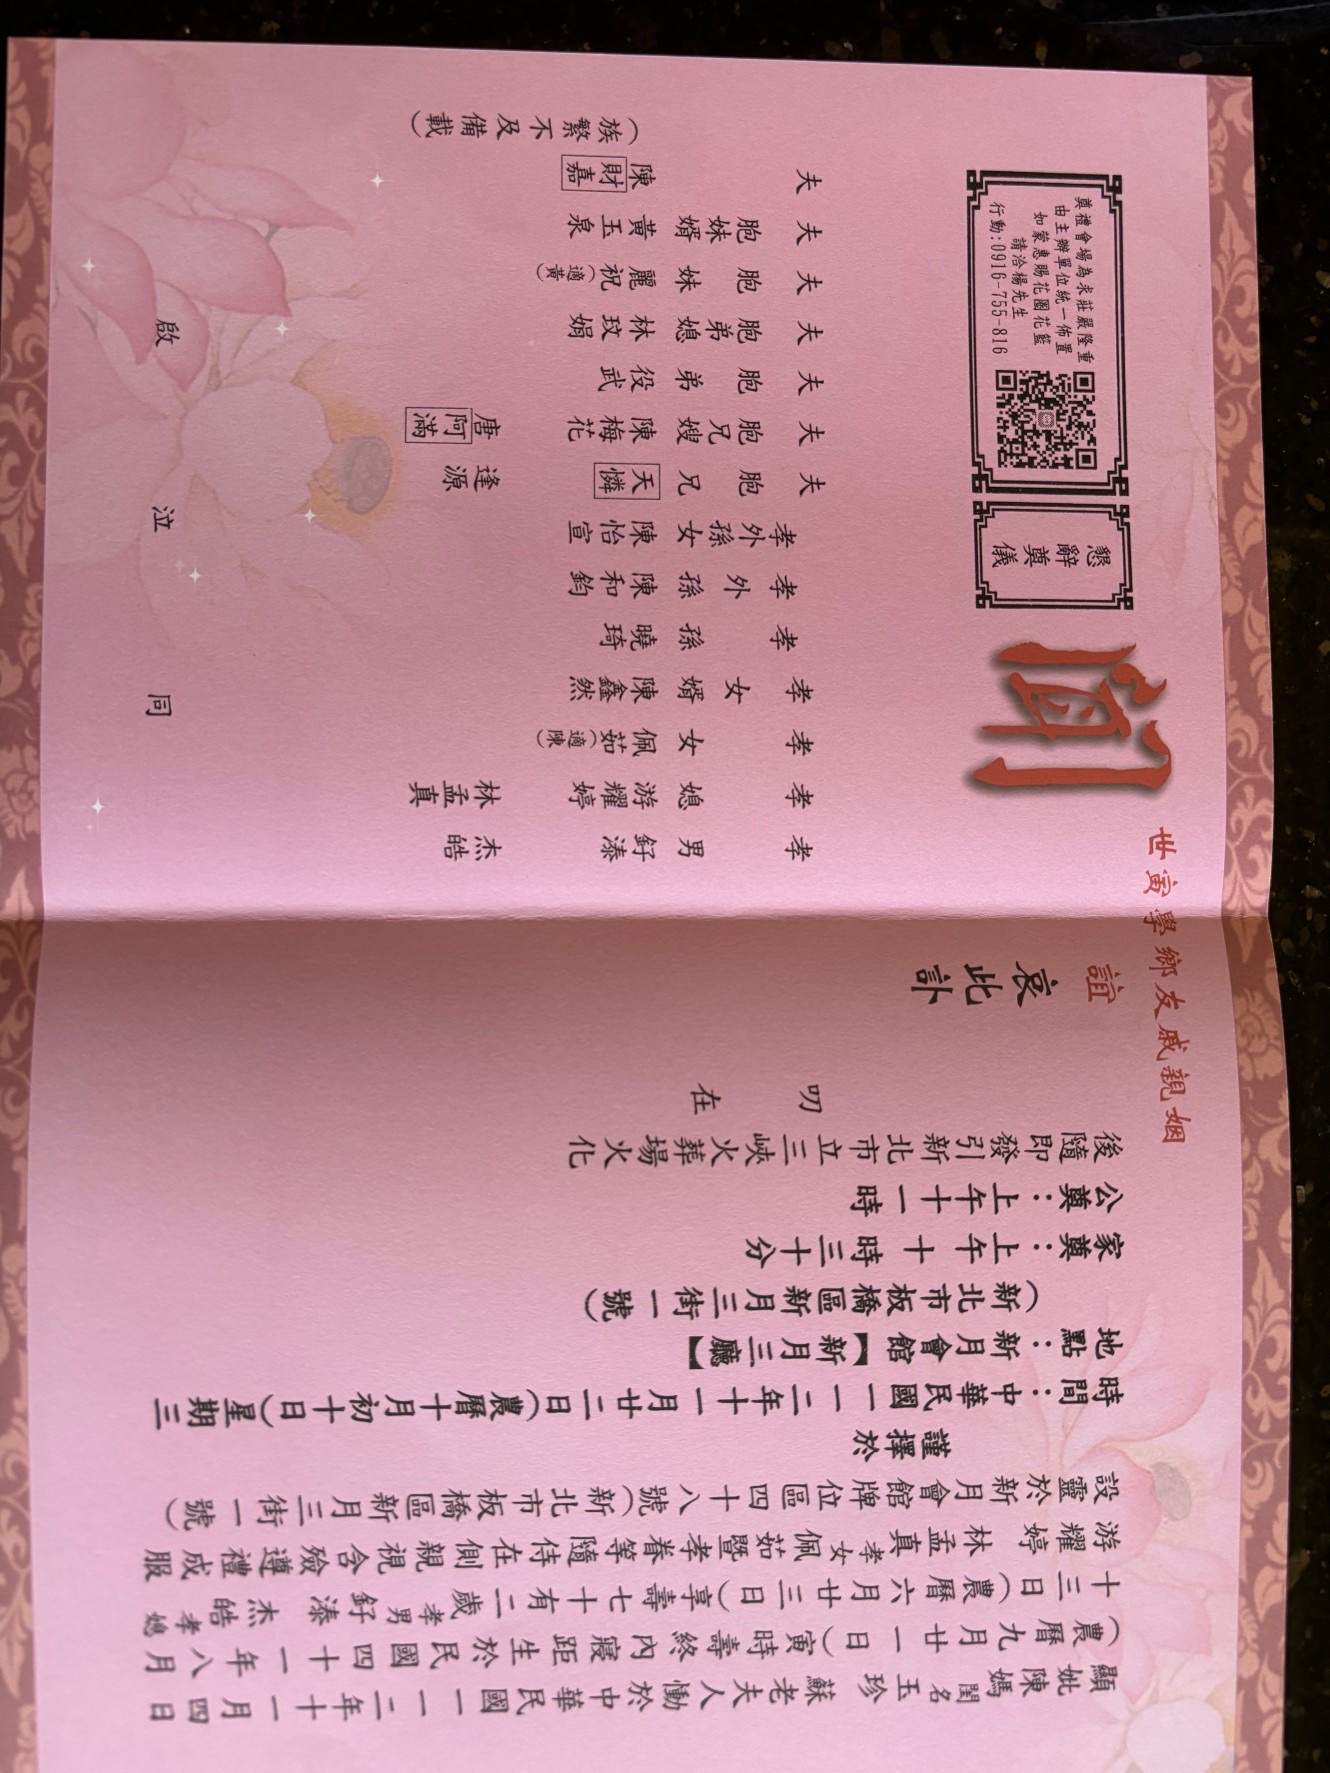 顯妣陳媽閨名玉珍 蘇老夫人慟於中華民國一一二年十一月四日
(農曆九月廿一日)寅時壽終內寢距生於民國四十一年八月
十三日(農曆六月廿三日)享壽七十有二歲孝男釪溱 杰皓孝媳
游耀婷 林孟真孝女佩茹暨孝眷等隨侍在側親視含殮遵禮成服
設靈於新月會館牌位區四十八號(新北市板橋區新月三街一號)
謹擇於
時間:中華民國一一二年十一月廿二日(農曆十月初十日)星期三
地點:新月會館【新月三廳】
(新北市板橋區新月三街一號)
家奠:上午十時三十分
公奠:上午十一時
後隨即發引新北市立三峽火葬場火化
叨在
姻親戚友鄉學寅世
誼哀此訃
聞
懇辭
奠儀
奠禮會場為求莊嚴隆重
由主辦單位統一佈置
如蒙惠賜花圈花籃
請洽楊先生
行動:0916-755-816
孝男 釪溱 杰皓
孝媳 游耀婷 林孟真
孝女 佩茹(適陳)
孝女婿 陳鑫然
孝孫 曉琦
孝外孫 陳和鈞
孝外孫女 陳怡宣
夫胞兄 天憐 逢源
夫胞兄嫂 陳梅花 唐阿滿
夫胞弟 役武
夫胞弟媳 林玟娟
夫胞妹 麗祝(適黃)
夫胞妹婿 黃玉泉
夫 陳財嘉
(族繁不及備載)
同泣啟